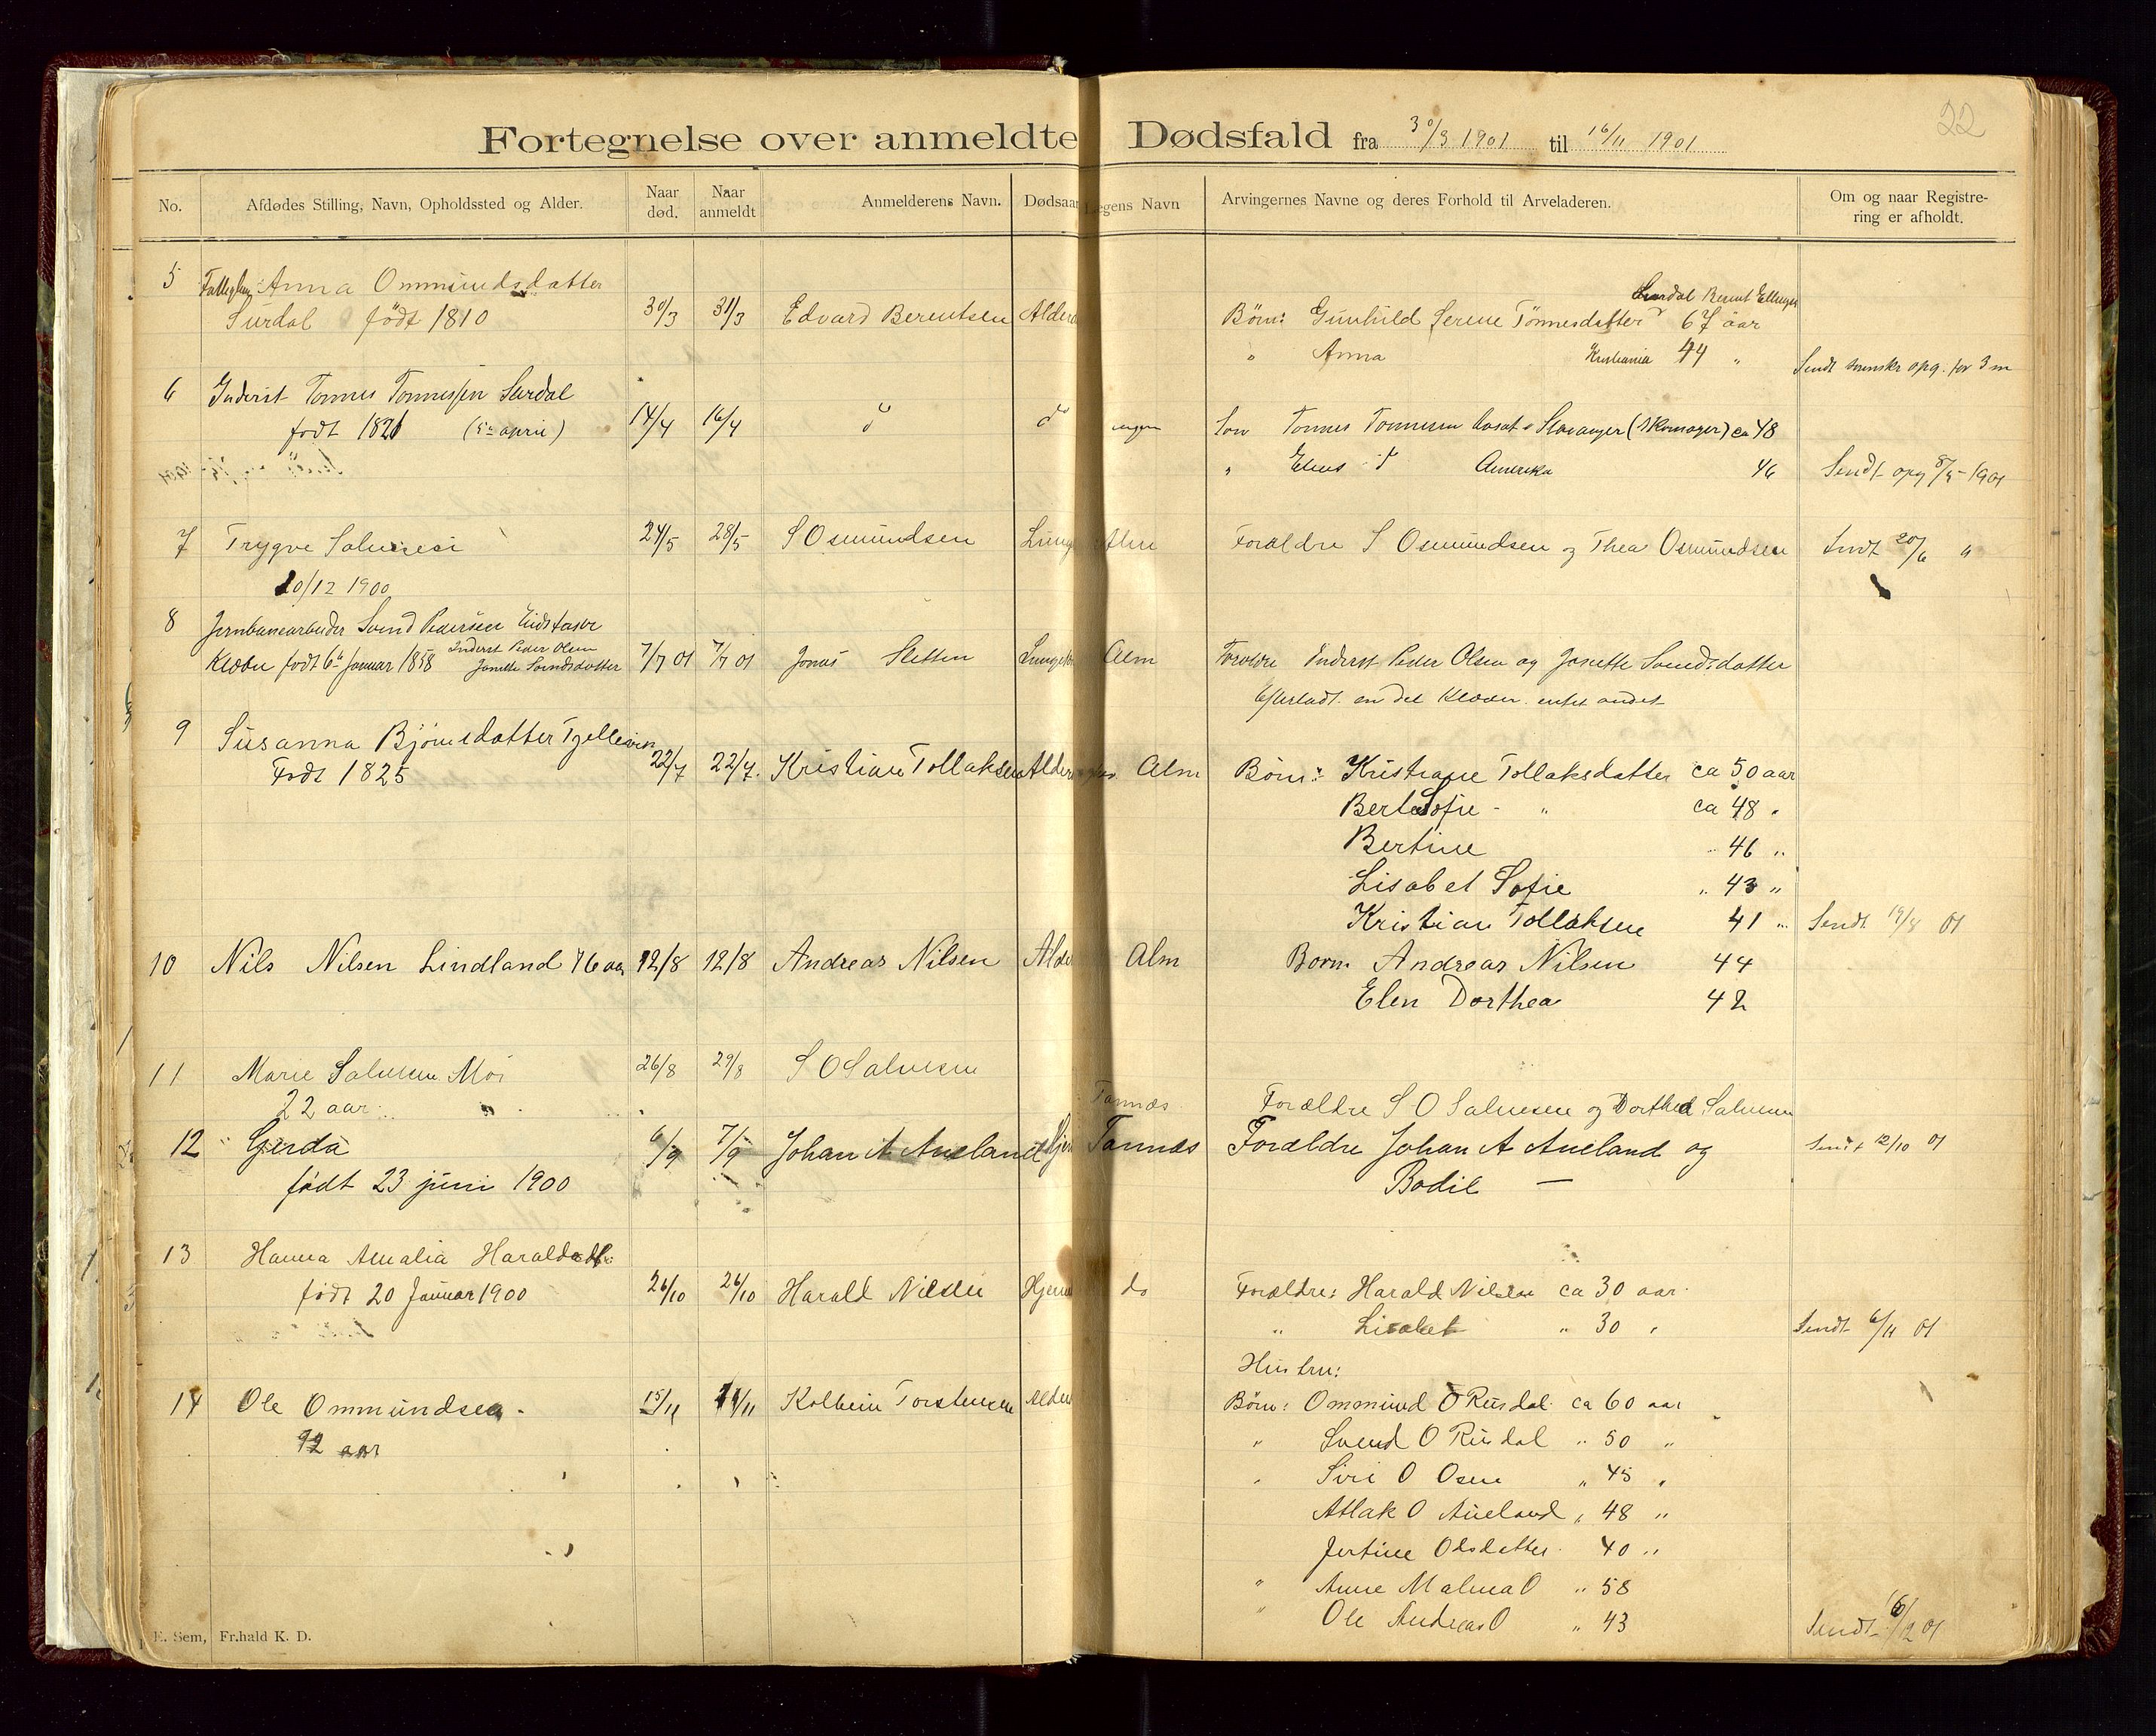 22
Fortegnelse over anmeldte Dødsfald fra 30/3 1901 til 16/11 1901
No. Afdødes Stilling, Navn, Opholdssted og Alder. Naar død. Naar anmeldt Anmelderens Navn. Dødsaar egens Navn Arvingernes Navne og deres Forhold til Arveladeren. Om og naar Registrering er afholdt.
5 Anna Ommundsdatter
Surdal Berent
Surdal født 1810 30/3 31/3 Edvard Berentsen Alder Börn: Gunhild Serene Tönnesdatter 67 aar
" Anna Kristiania 44 "
Sendt opg. for 3 m
6 Inderst Tonnes Tonnessen Surdal
født 1821 (5te april) 14/4 16/4 do do ingen Son Tonnes Tonnessen bosat Stavanger (Skomager) ca 48
" Elias do Amerika 46 Sendt opg 8/5 1901
7 Trygve Salvesen 24/5 28/5 S Osmundsen Lung Alm Foraldre S Osmundsen og Thea Osmundsen Sendt 20/6 "
20/12 1900
8 Jernbanearbeider Svend Pedersen
Inderst Peder Olsen
født 6te Januar 1858 Janette Svendsdatter 7/7 01 7/7 01 Jonas Sletten Lunge Alm Foraldre Inderst Peder Olsen og Janette Svendsdatter
Efterladt en del Klæder intet andet
9 Susanna Björnsdatter Tjellesvin
Født 1825 22/7 22/7. Kristian Tollaksen Alder Alm Börn: Kristiane Tollaksdatter ca 50 aar
Berte Sofie - " ca 48 "
Bertine " 46 "
Lisabet Sofie " 43 "
Kristian Tollaksen 41 " Sendt 19/8 01
10 Nils Nilsen Lindland 76 aar 12/8 12/8 Andreas Nilsen Alde Alm Born Andreas Nilsen 44
Elen Dorthea 42
11 Marie Salvesen Moi 26/8 29/8 S O Salvesen
22 aar Tannæs Foræeldre S O Salvesen og Dorthea Salvesen
12 Gerda 6/9 7/9 Johan A Aueland Hjer Tannæs Forældre Johan A Aueland og Sendt 12/10 01
født 23 juni 1900 Bodil —
13 Hanna Amalia Haraldsdt:
født 20 Januar 1900 26/10 26/10 Harald Nilsen Hjern do Forældre: Harald Nilsen ca 30 aar
" Lisabet " 30 " Sendt 6/11 01
Hustru:
14 Ole Ommundsen 15/11 Kolbein Torstensen Alder Börn: Ommund O Rusdal ca 60 aar
92 aar
" Svend O Rusdal " 50 "
" Siri O Osen " 45 "
Atlak O Aueland " 48 "
Jertine Olsdatter 40 "
" Anne Malena O " 58
" Ole Andreas O " 43
Sendt 12 01
E. Sem, Fr.hald K. D.